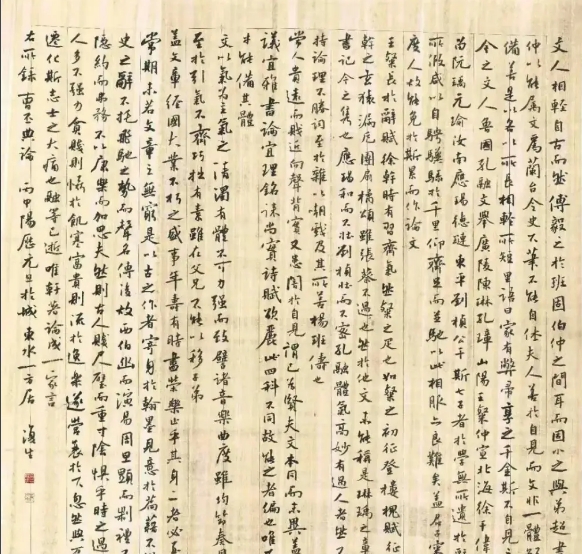 文人相輕自古而然傅毅之於班固伯仲之間耳而固小之與弟超書
仲以能屬文為蘭台令史下筆不能自休夫人善於自見而文非一體
備善是以各以所長相輕所短里語曰家有弊帚享之千金斯不自見
今之文人魯國孔融文舉廣陵陳琳孔璋山陽王粲仲宣北海徐幹偉
留阮瑀元瑜汝南應瑒德璉東平劉楨公幹斯七子者於學無所遺於
所假咸以自騁驥騄於千里仰齊足而並馳以此相服亦良難矣蓋君子審
度人故能免於斯累而作論文
王粲長於辭賦徐幹時有齊氣然粲之匹也如粲之初征登樓槐賦征
幹之玄猿漏卮團扇橘頌雖張蔡不過也然於他文未能稱是琳瑀之章
書記今之雋也應瑒和而不壯劉楨壯而不密孔融體氣高妙有過人者然不
持論理不勝詞至於雜以嘲戲及其所善楊班儔也
常人貴遠而賤近向聲背實又患闇於自見謂己為賢夫文本同而末異蓋
議宜雅書論宜理銘誄尚實詩賦欲麗此四科不同故能之者偏也唯
才能備其體
文以氣為主氣之清濁有體不可力強而致譬諸音樂曲度雖均節奏同
至於引氣不齊巧拙有素雖在父兄不能以移子弟
蓋文章經國大業不朽之盛事年壽有時盡榮樂止乎其身二者必至
常期未若文章之無窮是以古之作者寄身於翰墨見意於篇籍不
史之辭不托飛馳之勢而聲名傳後故西伯幽而演易周旦顯而制禮
隱約而弗務不以康樂而加思夫然則古人賤尺璧而重寸陰懼乎時之過
人多不強力貧賤則懾於飢寒富貴則流於逸樂遂營衰於下忽然與萬
遷化斯志士之大痛也融等已逝唯幹著論成一家言
右所錄曹丕典論 丙申陽歷元旦於城東水一方居